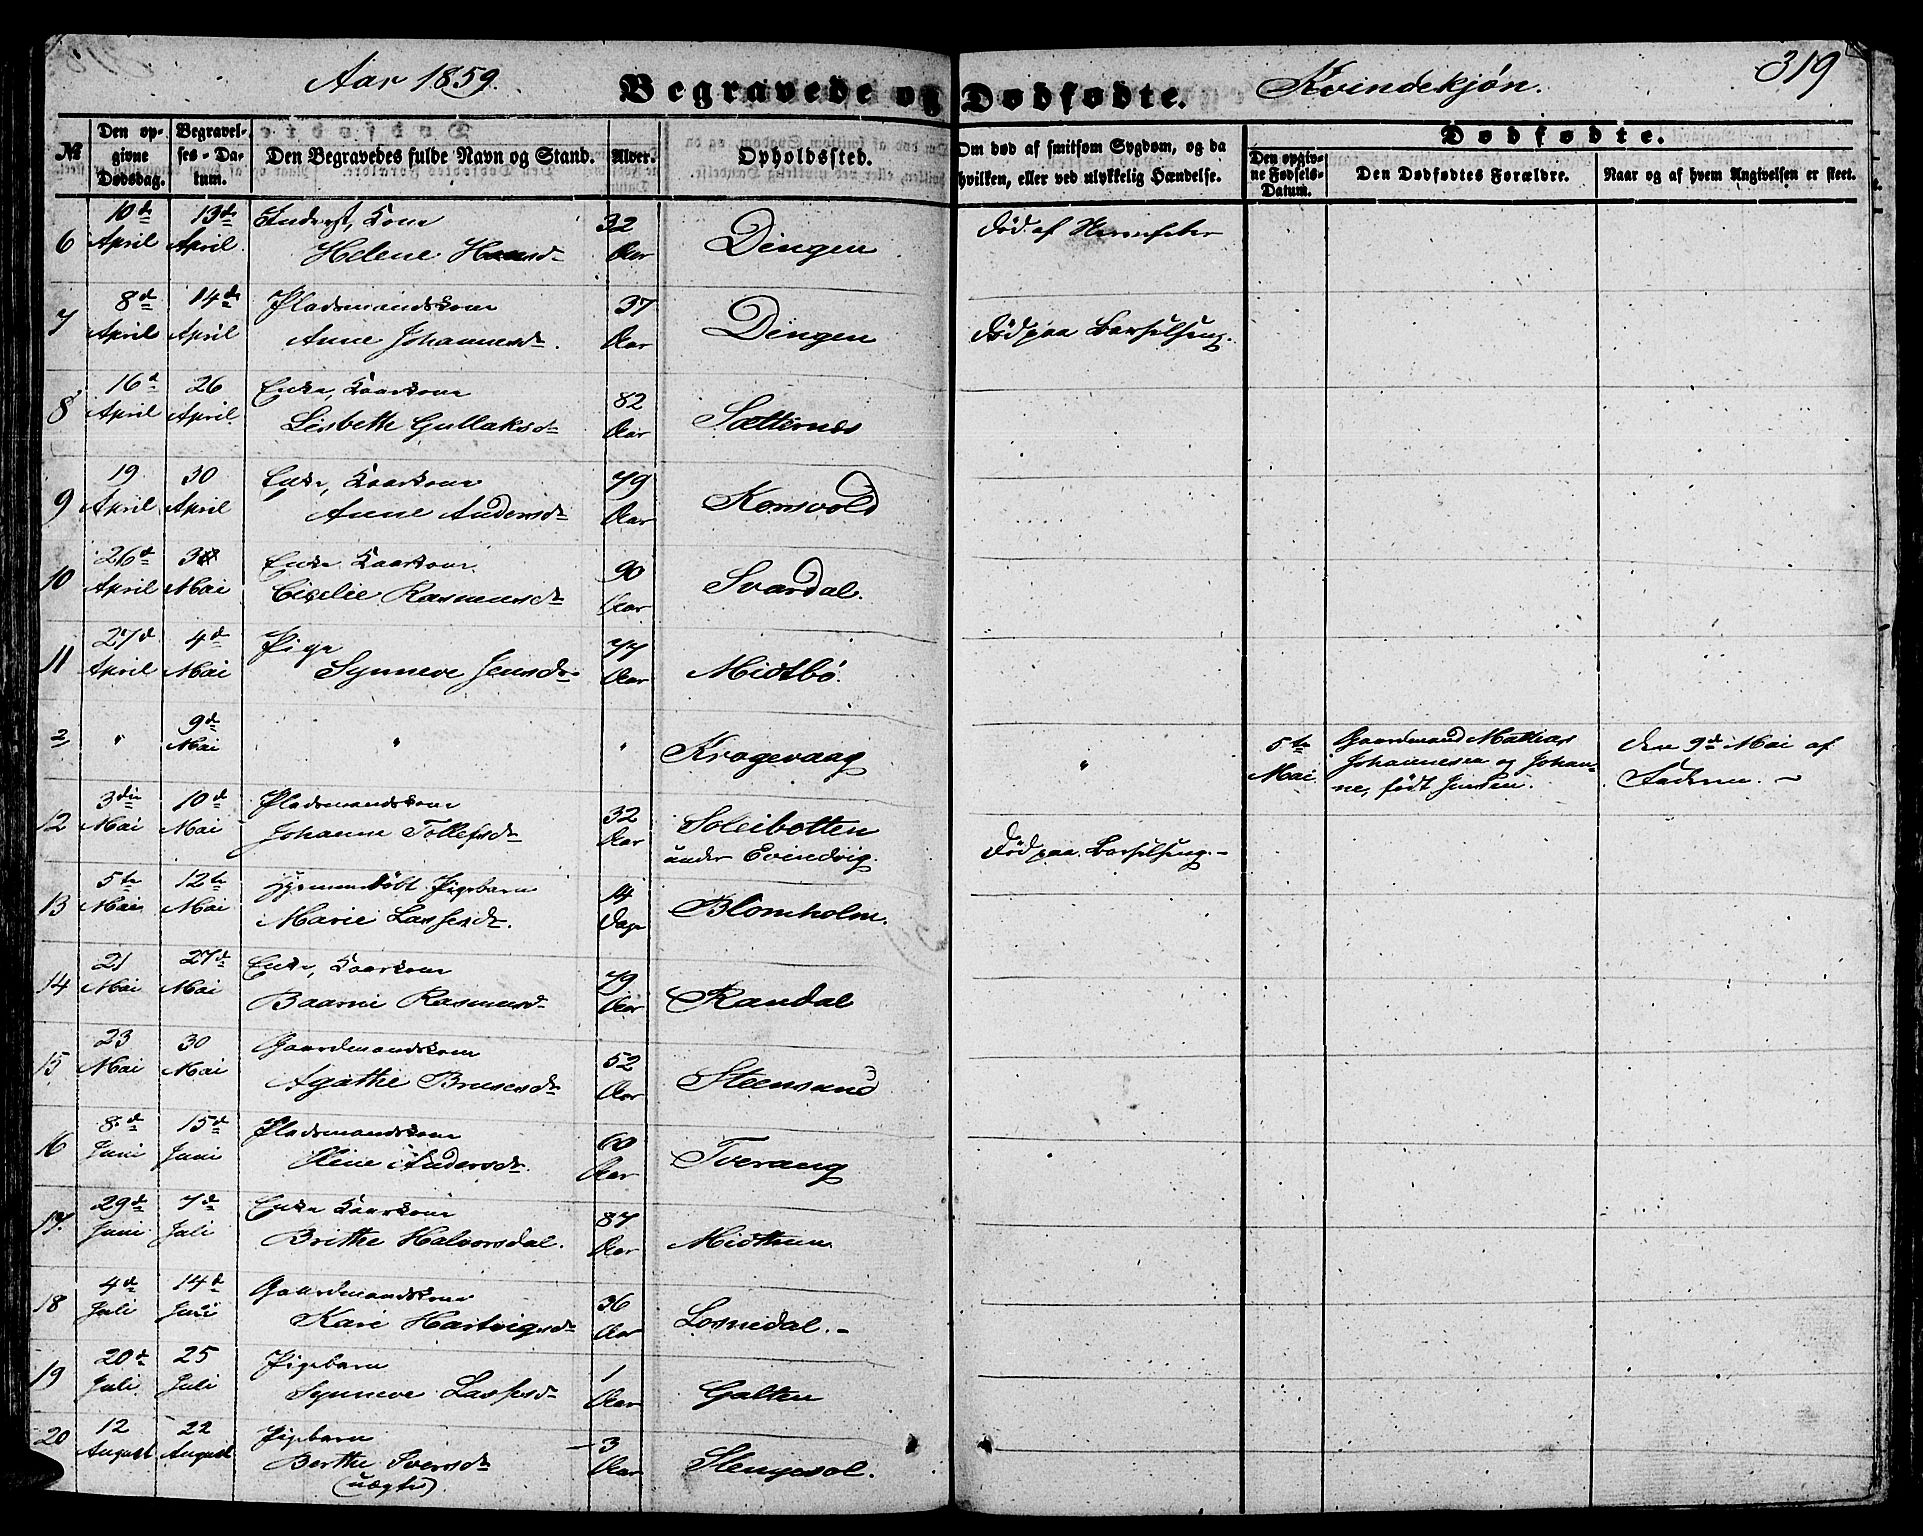 Aar 1859.
Begravede og Dødfødte.
Kvindekjøn.
319
№
Den opgivne Dødsdag.
Begravelses-Datum.
Den Begravedes fulde Navn og Stand.
Alder.
Opholdssted.
Om død af smitsom Sygdom, og da hvilken, eller ved ulykkelig Hændelse.
Dødfødte.
Den opgivne Fødsels-Datum.
Den Dødfødtes Forældre.
Naar og af hvem Angivelsen er skeet.
6 10de April 13de April Inderst, Kone Helene Hansdr 32 Aar Dingen Død af
7 8de April 14de April Pladsmandskone Anne Johannesdr. 37 Aar Dingen Død paa Barselseng.
8 16d April 26 April Enke, Kaarkone Lisbethe Gullaksdr 82 Aar Sætternes
9 19 April 30 April Enke, Kaarkone Anne Andersdr 79 Aar Konsvold
10 26d April Mai Enke Kaarkone Cicelie Rasmusdr 90 Aar Svardal.
11 27d April 4d Mai Pige Synneve Jensdr 77 Aar Midtbø.
2 " 9d Mai " " Kragevaag " 5te Mai Gaardmand Mathias Johannesen og Johanne, født Jensen. Den 9d Mai af Faderen. –
12 3die Mai 10d Mai Pladsmandskone Johanne Tollefsdr 32 Aar Soleibotten under Evindvig. Død paa Barselseng. –
13 5te Mai 12te Mai Hjemmedøbt Pigebarn Marie Lassesdr. 14 Dage Blomholm.
14 21 Mai 27d Mai Enke, Kaarkone Baarni Rasmusdr 79 Aar Randal
15 23 Mai 30 Mai Gaardmandskone Agathe Brusesdr 52 Aar Steensund
16 8d Juni 15d Juni Pladsmandskone Andersdr. 60 Aar Tverang
17. 29de Juni 7d Juli Enke Kaarkone Brithe Halvorsdal. 87 Aar Midthun
18 4d Juli 14d Juli Gaardmandskone Kari Hartvigsdr 36 Aar Losnedal. –
19 20d Juli 25 Juli Pigebarn Synneve Lassesdr 1 Aar Galten
20 12 August 22 August Pigebarn Berthe Iversdr (uægte) 3 Aar Stengesol.